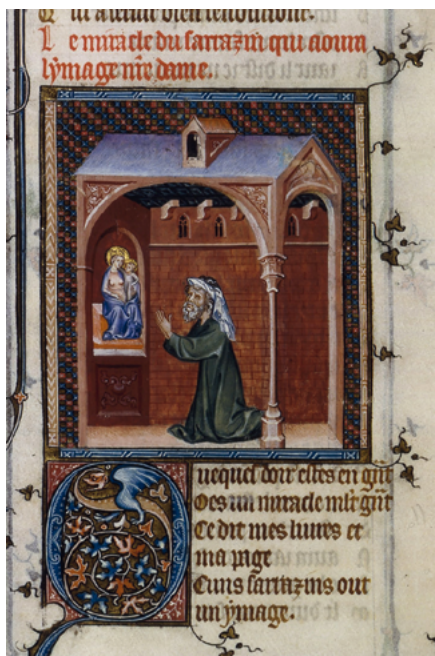 L e miracle du sarrazin qui aoura
lymage nr̃e dame.
Q ueque doir estes en gñt
Oes un miracle mlt gñt
Ce dit mes liures et
ma page
Cuns sarrazins out
un ymage.